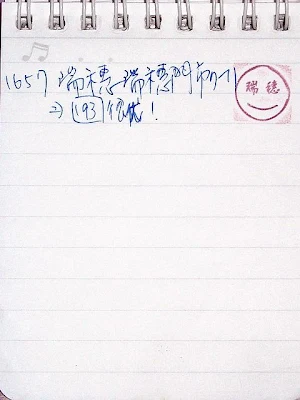 1657 瑞穗-瑞穗門市
→ 193 很優！
瑞穗